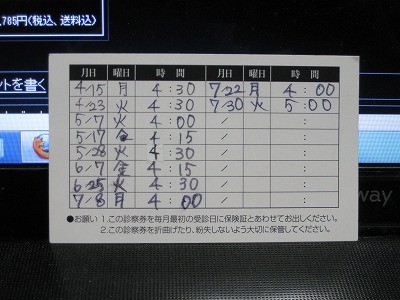 ,785円(税込、送料込)
ットを書く
月日 曜日 時間 月日 曜日 時間
4/15 月 4:30 7/22 月 4:00
4/23 火 4:30 7/30 火 5:00
5/7 火 4:00 /
5/17 金 4:15 /
5/28 火 4:30 /
6/7 金 4:15 /
6/25 火 4:30 /
7/8 月 4:00 /
●お願い 1.この診察券を毎月最初の受診日に保険証とあわせてお出しください。
2.この診察券を折曲げたり、紛失しないよう大切に保管してください。
way